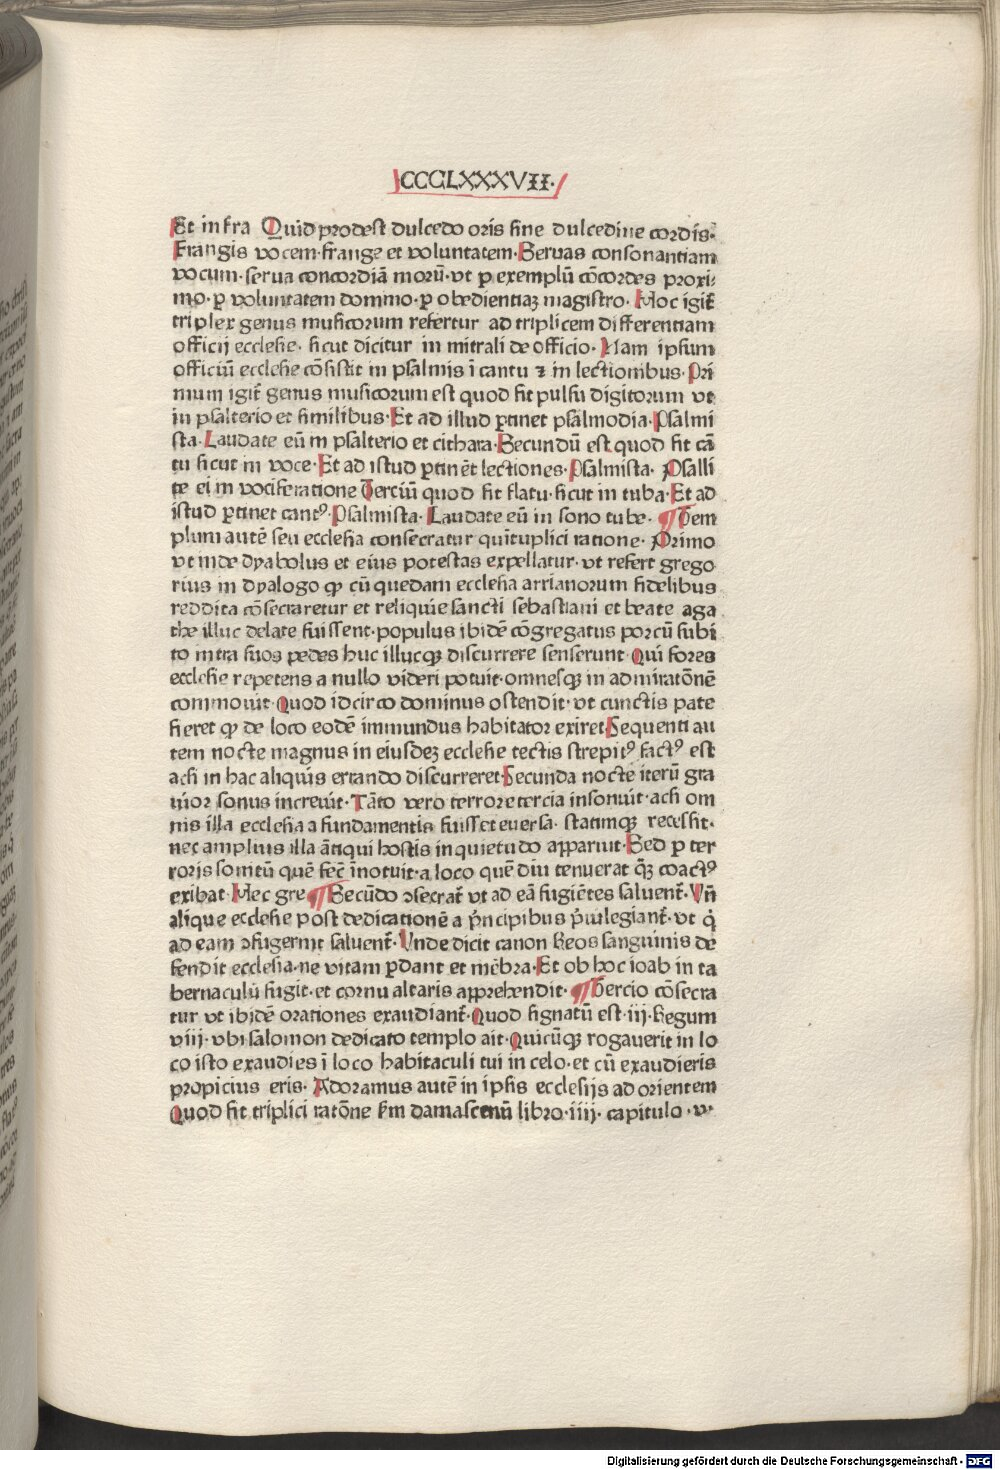 CCCLXXXVII.
Et infra Quid prodest dulcedo oris sine dulcedine cordis.
Frangis vocem. frange et voluntatem. Seruas consonantiam
vocum. serua concordiā morū. vt ꝑ exemplū cōcordes proxi-
mo. ꝑ voluntatem domino. ꝑ obedientiaꝫ magistro. Hoc igit᷑
triplex genus musicorum refertur ad triplicem differentiam
officij ecclesie. sicut dicitur in mitrali de officio. Nam ipsum
officiū ecclesie cōsistit in psalmis ī cantu ⁊ in lectionibus. Pri
mum igit᷑ genus musicorum est quod fit pulsu digitorum vt
in psalterio et similibus. Et ad illud ꝑtinet psalmodia. Psalmi
sta. Laudate eū in psalterio et cithara. Secundū est quod fit cā
tu sicut in voce. Et ad istud ꝑtinēt lectiones. Psalmista. Psalli
te ei in vociferatione Terciū quod fit flatu. sicut in tuba. Et ad
istud ꝑtinet cantꝰ. Psalmista. Laudate eū in sono tube. ¶ Tem
plum autē seu ecclesia consecratur quītuplici ratione. Primo
vt inde dyabolus et eius potestas expellatur. vt refert grego
rius in dyalogo ꝙ cū quedam ecclesia arrianorum fidelibus
reddita cōsecraretur et reliquie sancti sebastiani et beate aga
the illuc delate fuissent. populus ibidē cōgregatus porcū subi
to intra suos pedes huc illucqꝫ discurrere senserunt. Qui fores
ecclesie repetens a nullo videri potuit. omnesqꝫ in admiratōnē
commouit. Quod idcirco dominus ostendit. vt cunctis pate
fieret ꝙ de loco eodē immundus habitator exiret. Sequenti au
tem nocte magnus in eiusdeꝫ ecclesie tectis strepitꝰ factꝰ est
acsi in hac aliquis errando discurreret. Secunda nocte iterū gra
uior sonus increuit. Tāto vero terrore tercia insonuit. acsi om
nis illa ecclesia a fundamentis fuisset euersa. statimqꝫ recessit.
nec amplius illa ātiqui hostis inquietudo apparuit. Sed ꝑ ter
roris sonitū quē fec̄ īnotuit. a loco quē diu tenuerat q̄ꝫ coactꝰ
exibat. Hec gre ¶ Secūdo ɔsecrat᷑ vt ad eā fugiētes saluent᷑. Vn̄
alique ecclesie post dedicationē a p̄ncipibus p̄uilegiant᷑. vt q̇
ad eam ɔfugerint saluent᷑. Vnde dicit canon Reos sanguinis de
fendit ecclesia. ne vitam ꝑdant et mēbra. Et ob hoc ioab in ta
bernaculū fugit. et cornu altaris apprehendit. ¶ Tercio cōsecra
tur vt ibidē orationes exaudiant᷑. Quod signatū est. iij. Regum
viij. vbi salomon dedicato templo ait. Quicūqꝫ rogauerit in lo
co isto exaudies ī loco habitaculi tui in celo. et cū exaudieris
propicius eris. Adoramus autē in ipsis ecclesijs ad orientem
Quod fit triplici ratōne ẜm damascenū libro. iiij. capitulo. v.
Digitalisierung gefördert durch die Deutsche Forschungsgemeinschaft - DFG